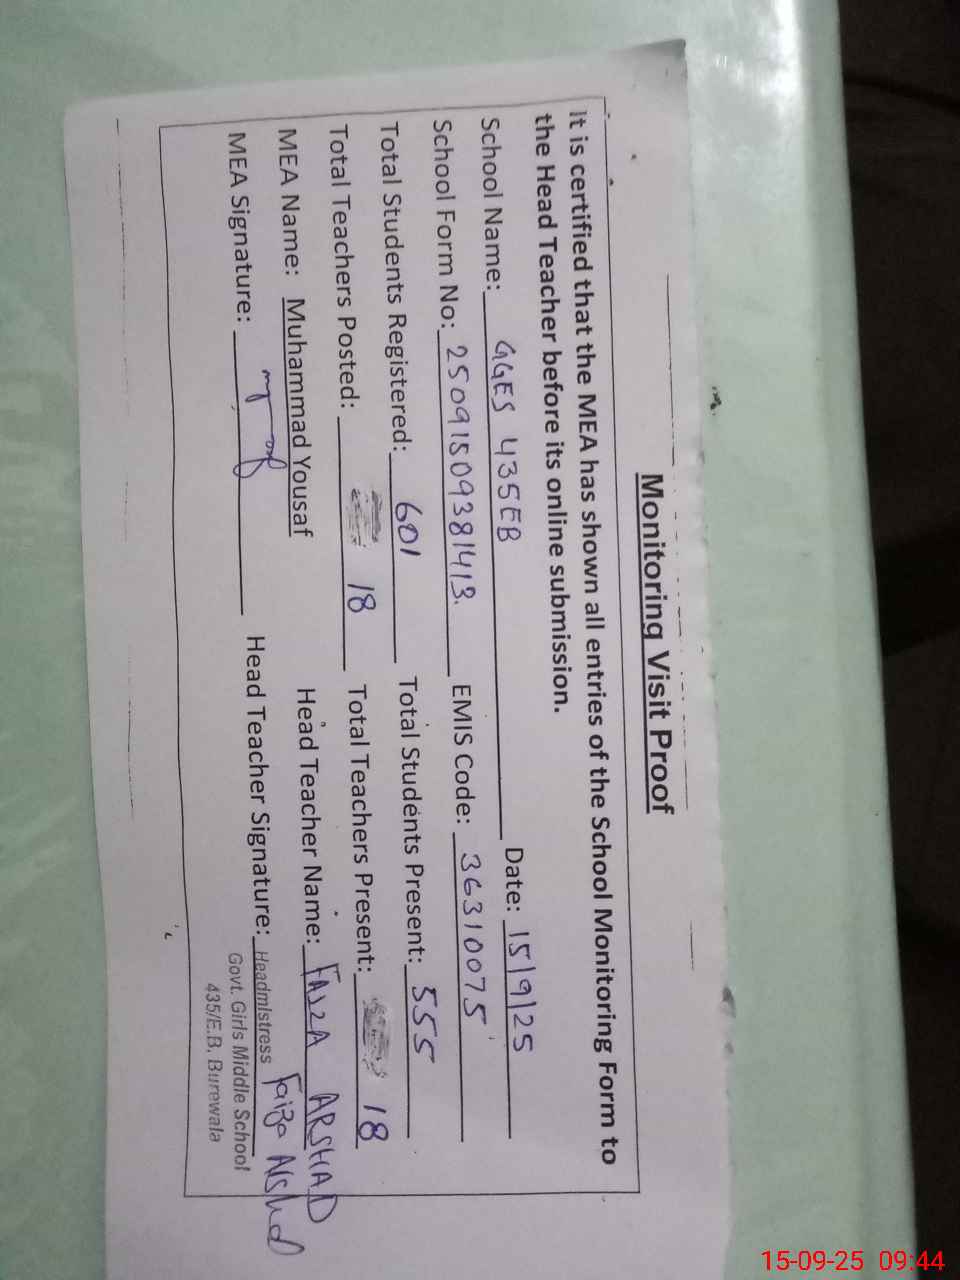 Monitoring Visit Proof
It is certified that the MEA has shown all entries of the School Monitoring Form to
the Head Teacher before its online submission.
School Name: GGES 435EB Date: 15/9/25
School Form No: 25091509381413. EMIS Code: 36310075
Total Students Registered: 601 Total Students Present: 555
Total Teachers Posted: 18 Total Teachers Present: 18
MEA Name: Muhammad Yousaf Head Teacher Name: FAIZA ARSHAD
MEA Signature: Head Teacher Signature: Faiza Arshad
Headmistress
Govt. Girls Middle School
435/E.B. Burewala
15-09-25 09:44